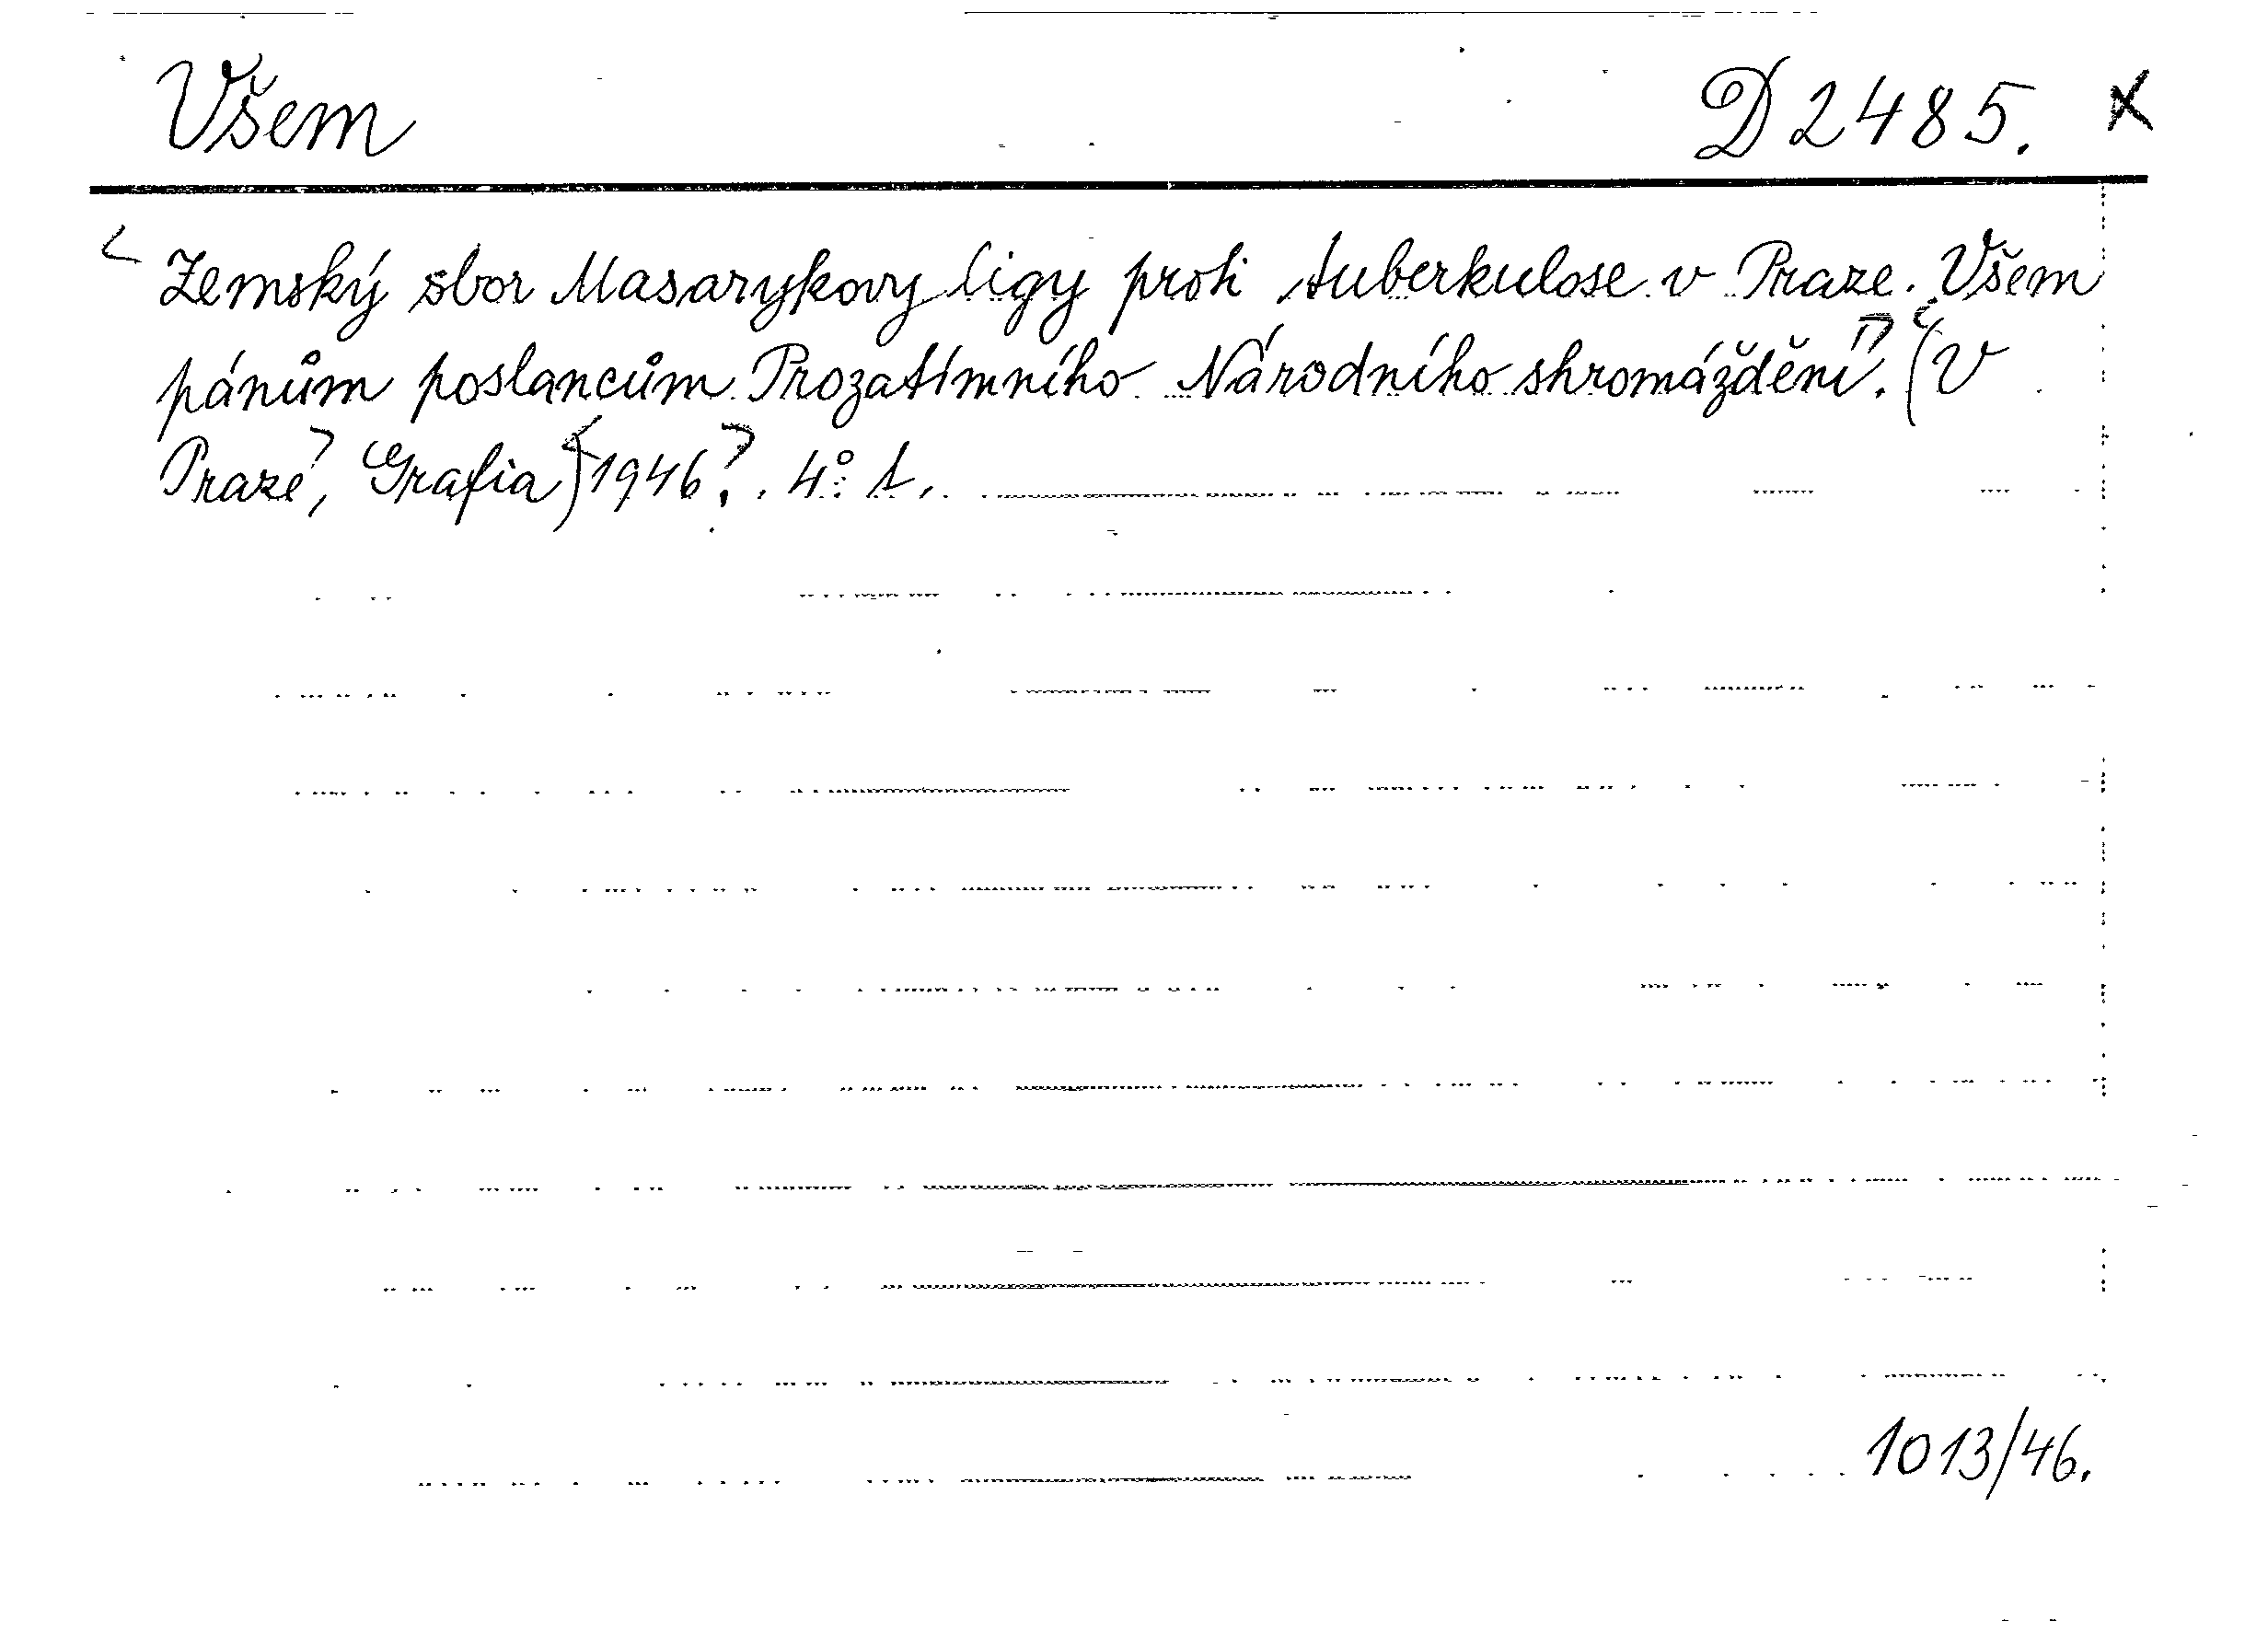 Všem D 2485. x
Zemský sbor Masarykovy ligy proti tuberkulose v Praze. Všem
pánům poslancům Prozatímního Národního shromáždění. (V
Praze, Grafia) 1946?. 4° 1.
1013/46.